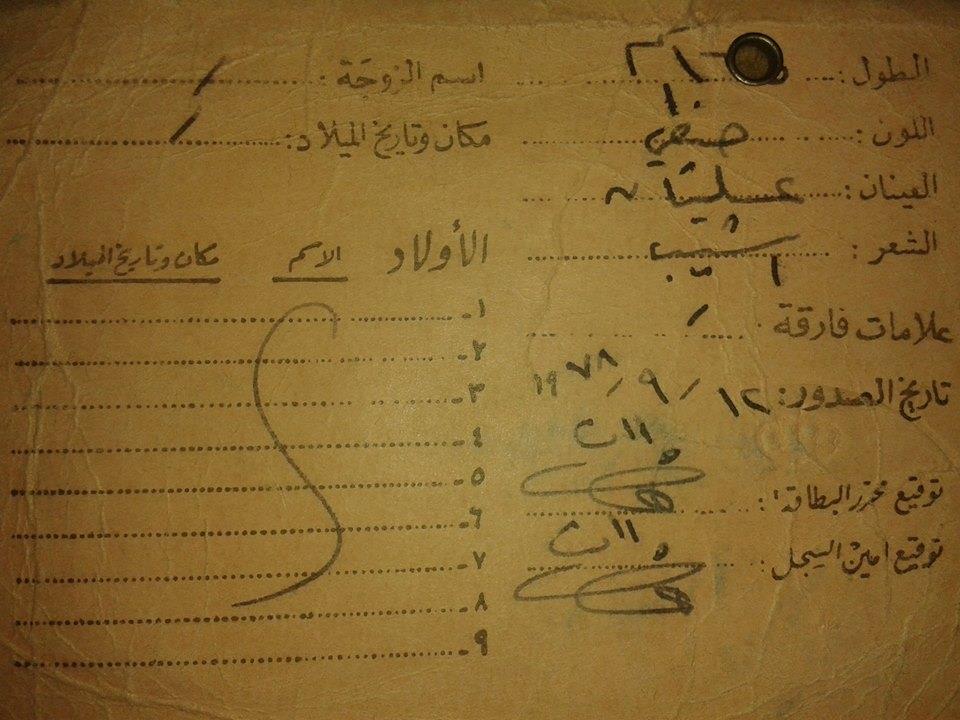 الطول:
اللون: حنطي
العينان: عسليتان
الشعر: اشيب
علامات فارقة /
تاريخ الصدور: ١٢ / ٩ / ١٩٧٨
توقيع محرر البطاقة:
توقيع امين السجل:
اسم الزوجة: /
مكان وتاريخ الميلاد: /
الأولاد الاسم مكان وتاريخ الميلاد
١-
٢-
٣-
٤-
٥-
٦-
٧-
٨-
٩-